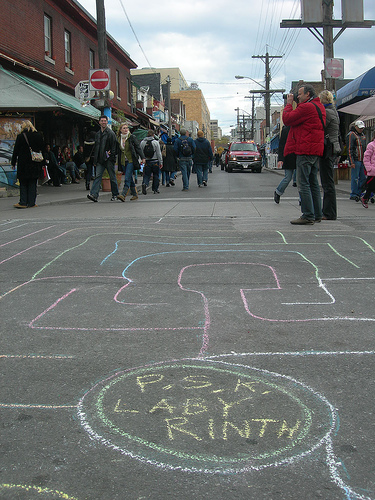 P.S.K.
LABY
RINTH